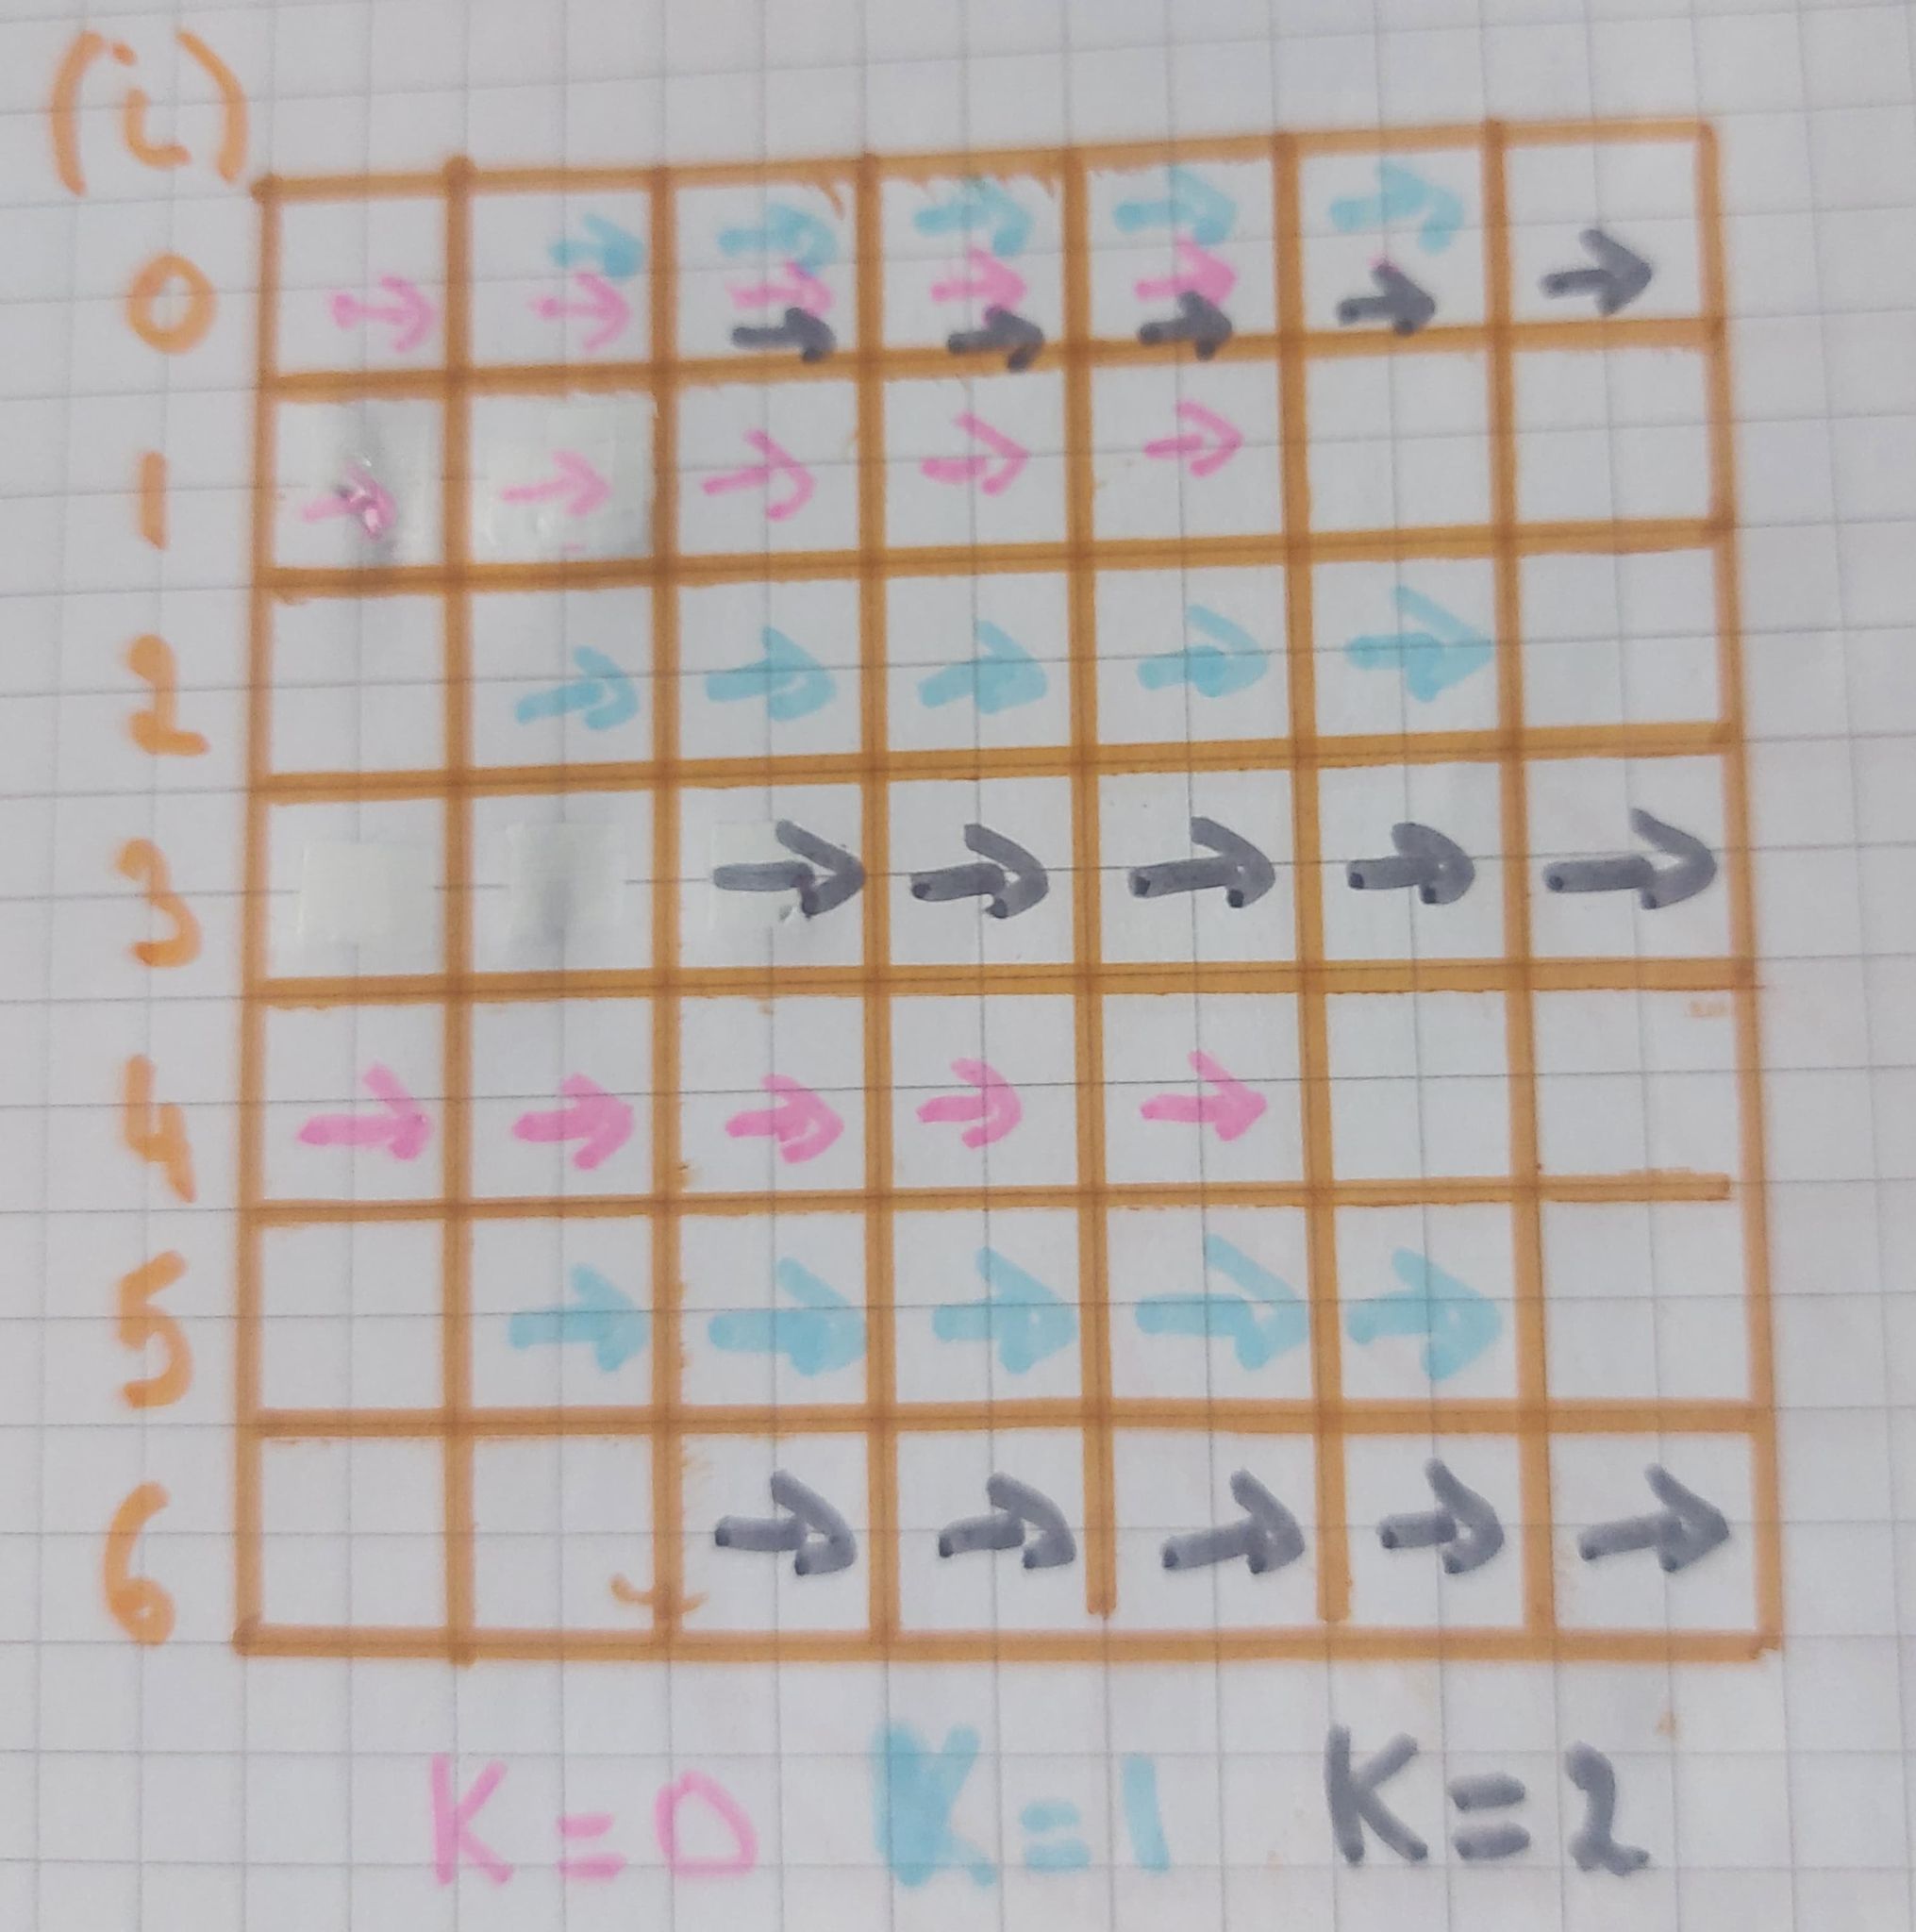 (i)
0
1
2
3
4
5
6
K=0 K=1 K=2